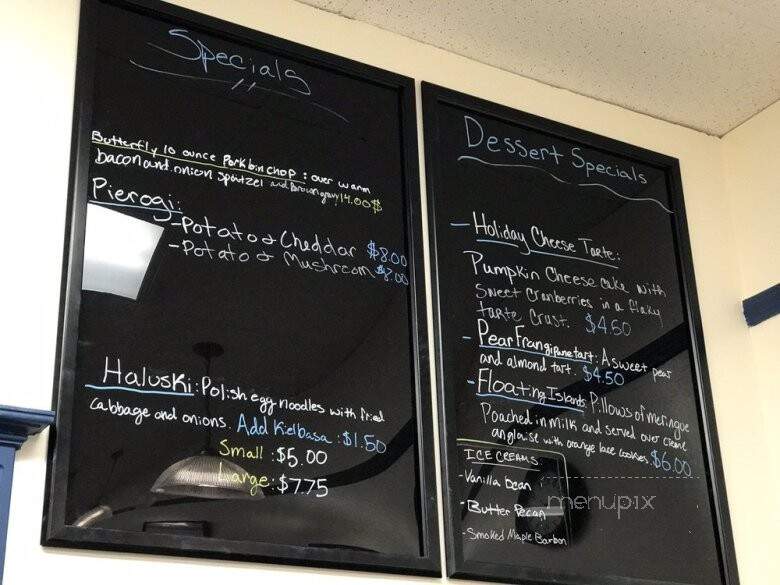 Specials
Butterfly 10 ounce Pork bin chop : over warm
bacon and onion spätzel and Brown gravy 14.00$
Pierogi:
-Potato & Cheddar $8.00
-Potato & Mushroom $8.00
Haluski: Polish egg noodles with fried
Cabbage and onions. Add Kielbasa : $1.50
Small : $5.00
Large : $7.75
Dessert Specials
- Holiday Cheese Tarte :
Pumpkin Cheese cake with
Sweet Cranberries in a flaky
tarte Crust. $4.50
- Pear Frangipane tart : A sweet pear
and almond tart. $4.50
- Floating Islands Pillows of meringue
Poached in milk and served over creme
anglaise with orange lace cookies. $6.00
ICE CREAMS:
- Vanilla bean
- Butter Pecan
- Smoked Maple Barbon
menupix